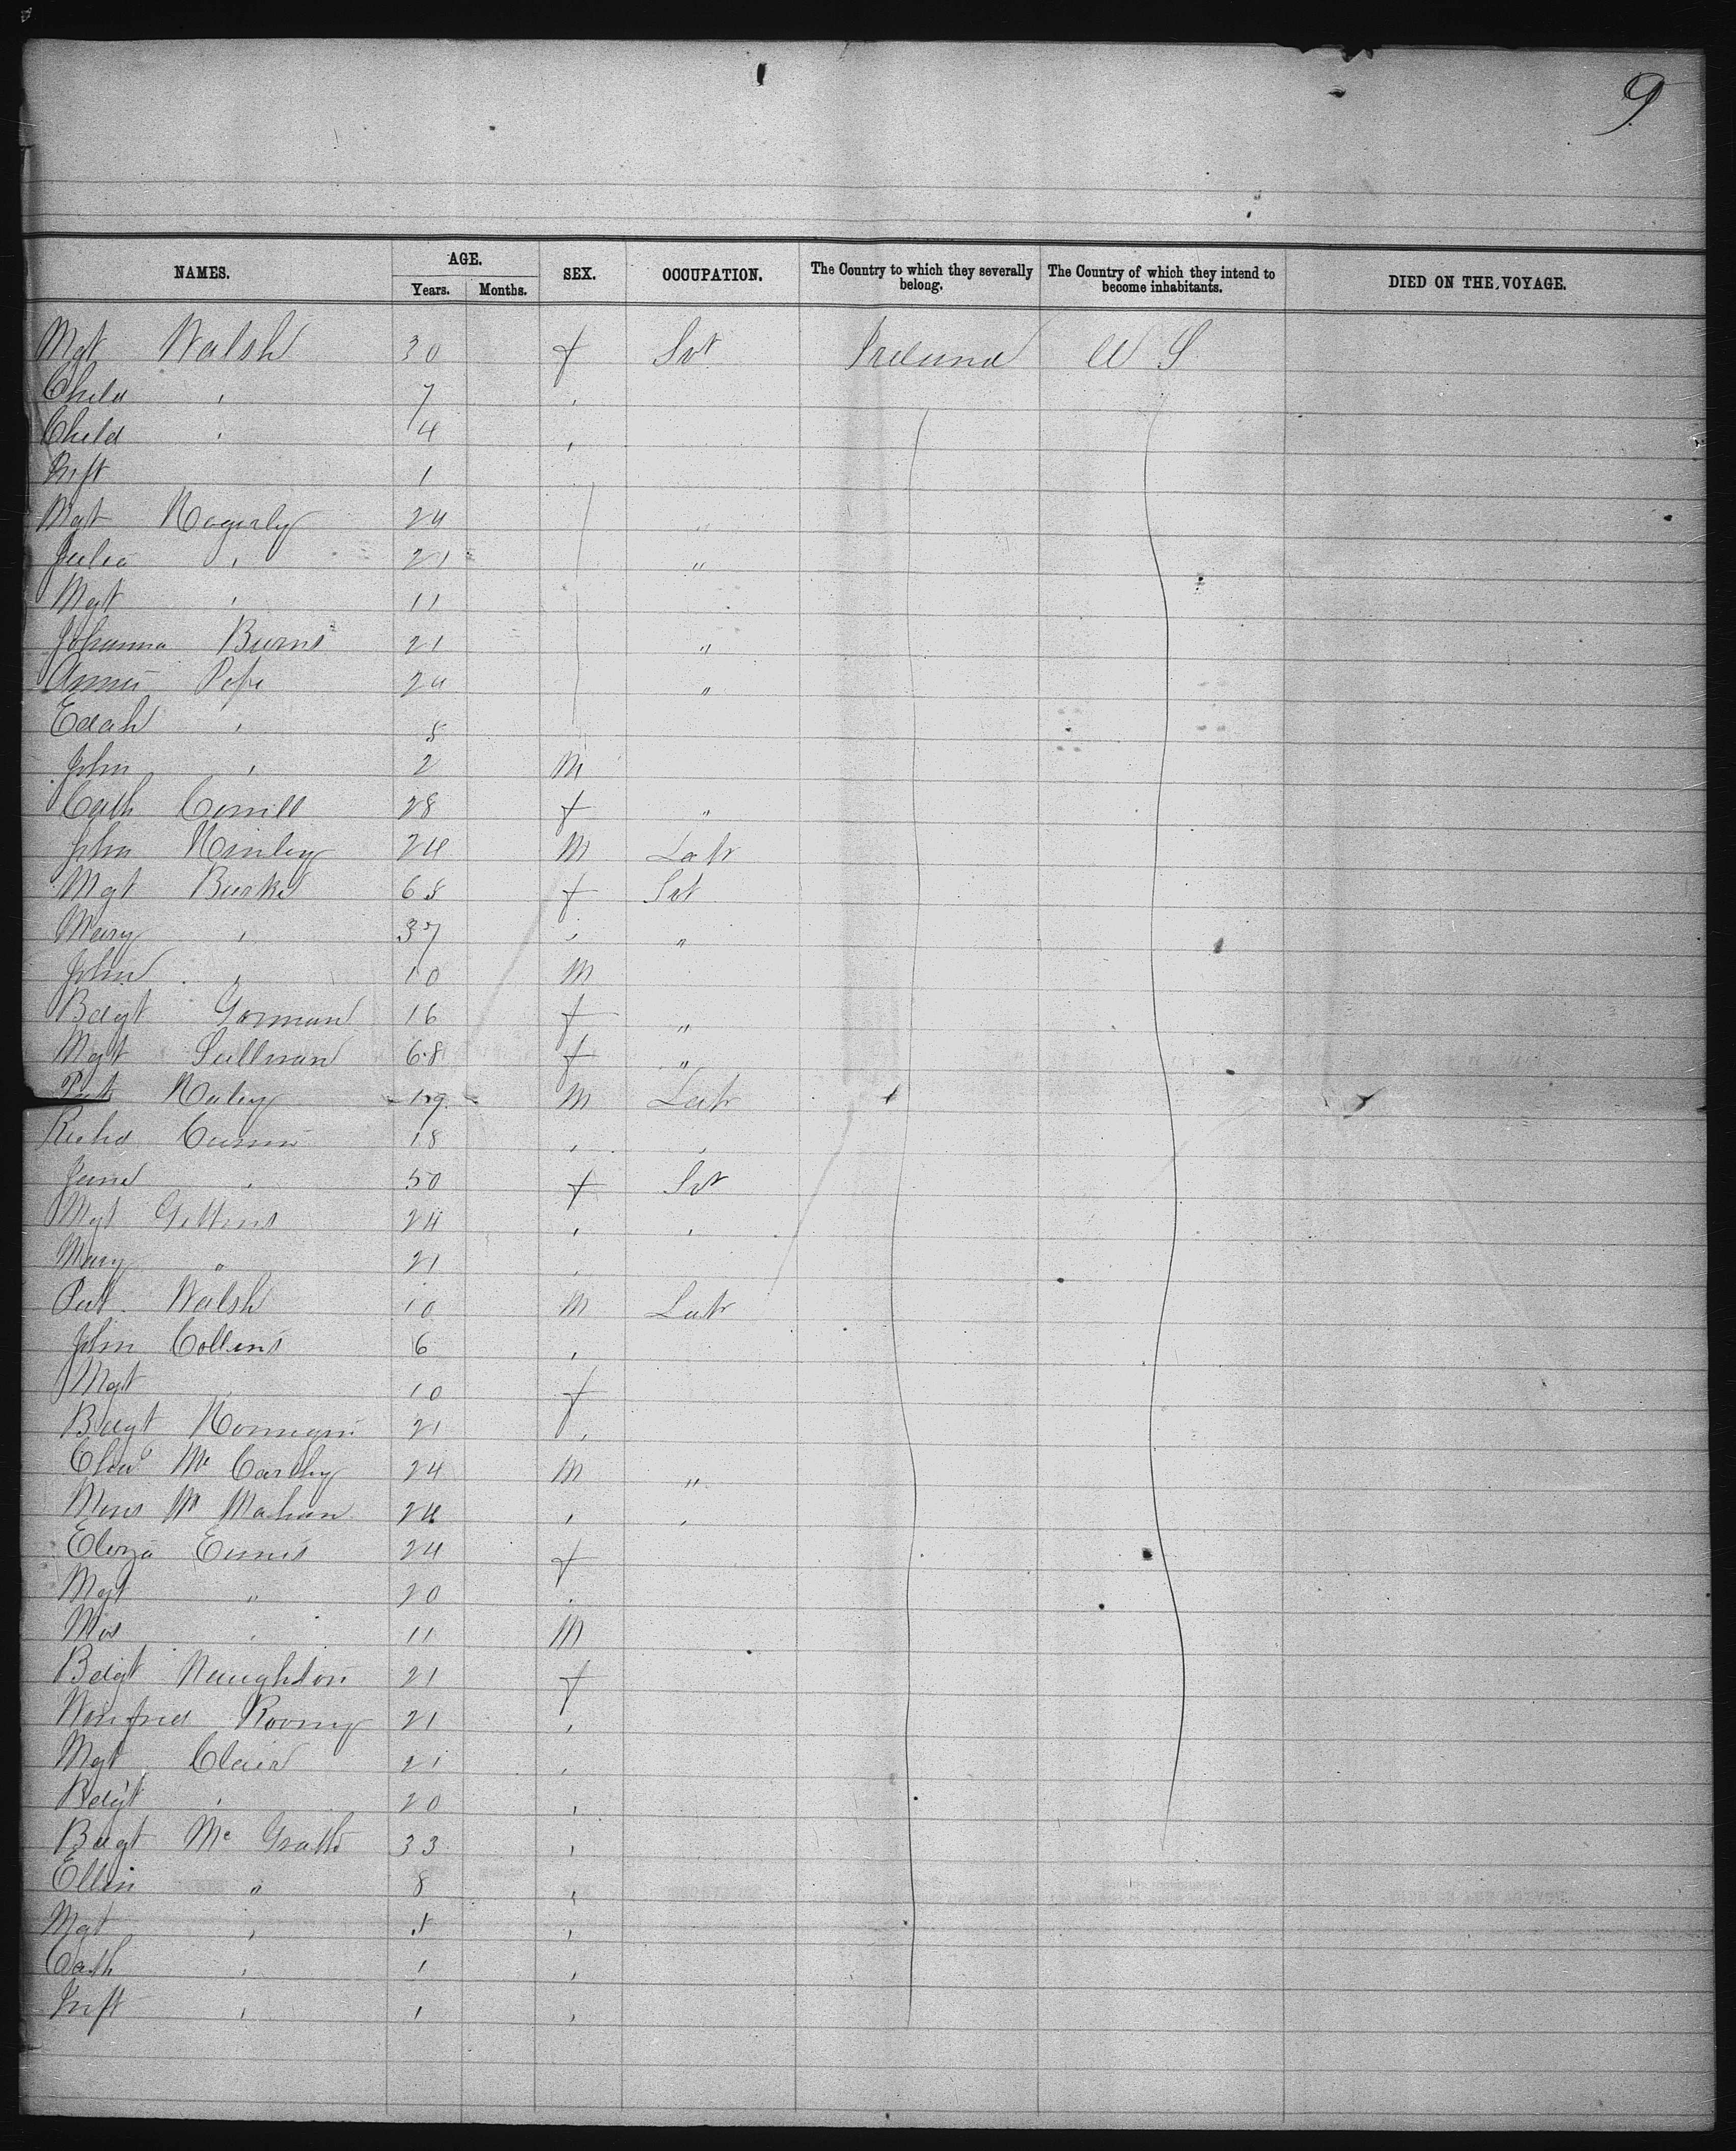 9
NAMES. AGE. Years. Months. SEX. OCCUPATION. The Country to which they severally belong. The Country of which they intend to become inhabitants. DIED ON THE VOYAGE.
Mgt Walsh 30 f Svt Ireland U S
Child " 7 "
Child " 4 "
Inft 1
Mgt 24 "
Julia " 21 "
Mgt " 11
Johanna Burns 21 "
Annie Pope 24 "
" 5
John " 2 M
Cath 28 f "
John 24 M Labr
Mgt Burke 65 f Svt
Mary " 37 " "
John " 10 M
Bdgt Gorman 16 f "
Mgt Sullivan 68 f "
Pat 19 M Labr
Richd 18 " "
Jane " 50 f Svt
Mgt 24 " "
Mary " 21 "
Pat Walsh 10 M Labr
John Collins 6 "
Mgt " 10 f
Bdgt 21 "
Mc Carthy 24 M "
Mc Mahon 24 " "
Eliza Ennis 24 f
Mgt " 20 "
" 11 M
Bdgt Naughton 21 f
Winifred Roony 21 "
Mgt Clair 21 "
Bdgt " 20 "
Bdgt Mc Grath 33 "
Ellen " 8 "
Mgt " 5 "
Cath " 1 "
Inft " 1 "